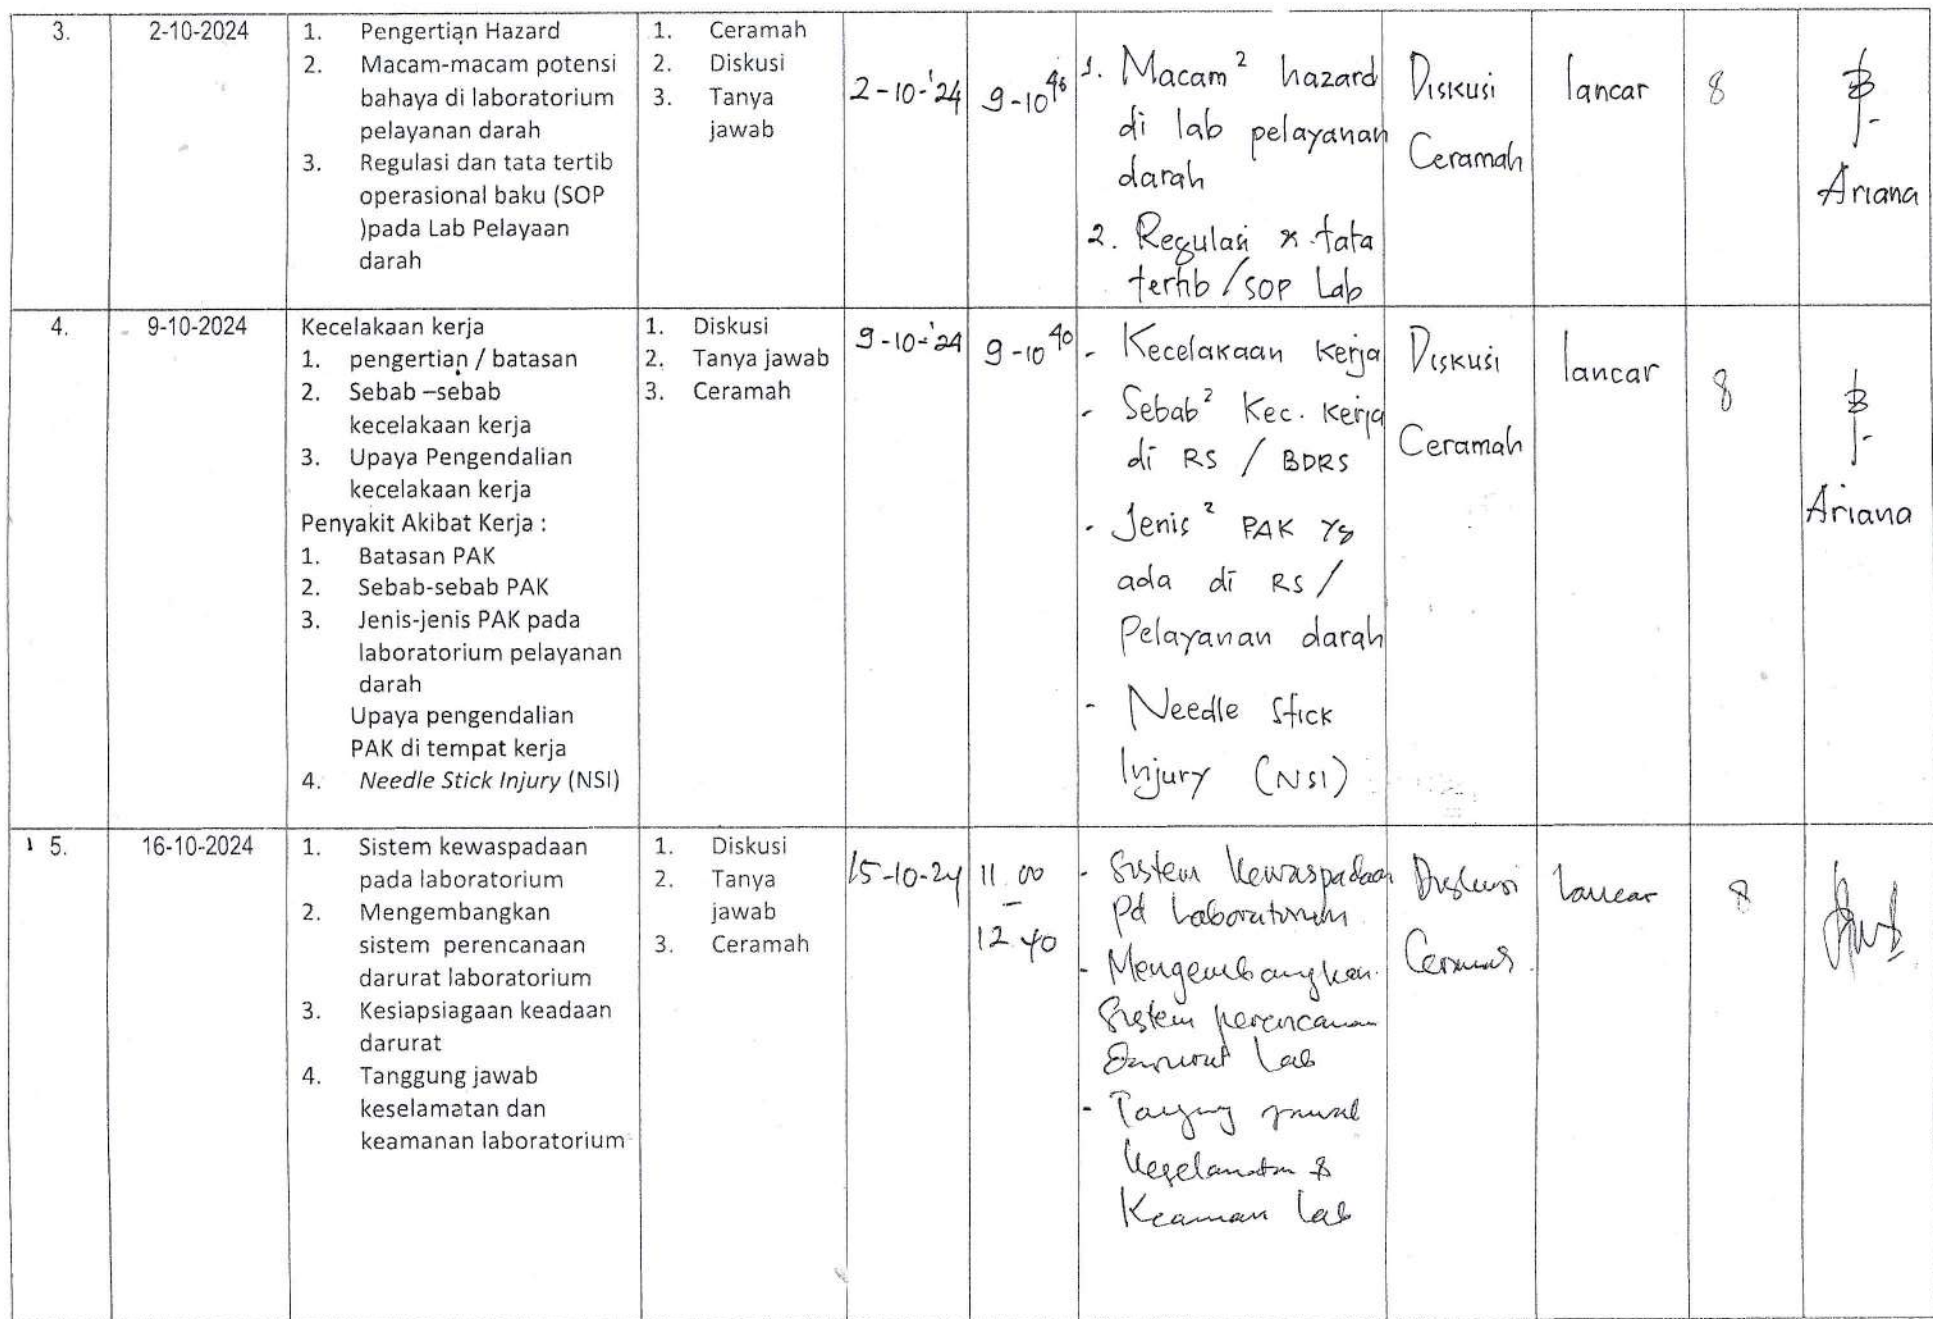 3.
2-10-2024
1. Pengertian Hazard
2. Macam-macam potensi
bahaya di laboratorium
pelayanan darah
3. Regulasi dan tata tertib
operasional baku (SOP
)pada Lab Pelayaan
darah
1. Ceramah
2. Diskusi
3. Tanya
jawab
2-10-'24
9-10
1. Macam² hazard
di lab pelayanan
darah
2. Regulasi & tata
tertib / SOP Lab
Diskusi
Ceramah
lancar
8
Ariana
4.
9-10-2024
Kecelakaan kerja
1. pengertian / batasan
2. Sebab –sebab
kecelakaan kerja
3. Upaya Pengendalian
kecelakaan kerja
Penyakit Akibat Kerja :
1. Batasan PAK
2. Sebab-sebab PAK
3. Jenis-jenis PAK pada
laboratorium pelayanan
darah
Upaya pengendalian
PAK di tempat kerja
4. Needle Stick Injury (NSI)
1. Diskusi
2. Tanya jawab
3. Ceramah
9-10-'24
9-10⁴⁰
- Kecelakaan kerja
- Sebab² Kec. kerja
di RS / BDRS
- Jenis² PAK yg
ada di RS /
Pelayanan darah
- Needle Stick
Injury (NSI)
Diskusi
Ceramah
lancar
8
Ariana
5.
16-10-2024
1. Sistem kewaspadaan
pada laboratorium
2. Mengembangkan
sistem perencanaan
darurat laboratorium
3. Kesiapsiagaan keadaan
darurat
4. Tanggung jawab
keselamatan dan
keamanan laboratorium
1. Diskusi
2. Tanya
jawab
3. Ceramah
15-10-24
11.00
-
12.40
- Sistem kewaspadaan
pd laboratorium
- Mengembangkan
Sistem perencanaan
Darurat Lab
- Tanggung jawab
keselamatan &
Keaman Lab
Diskusi
Ceramah
lancar
8